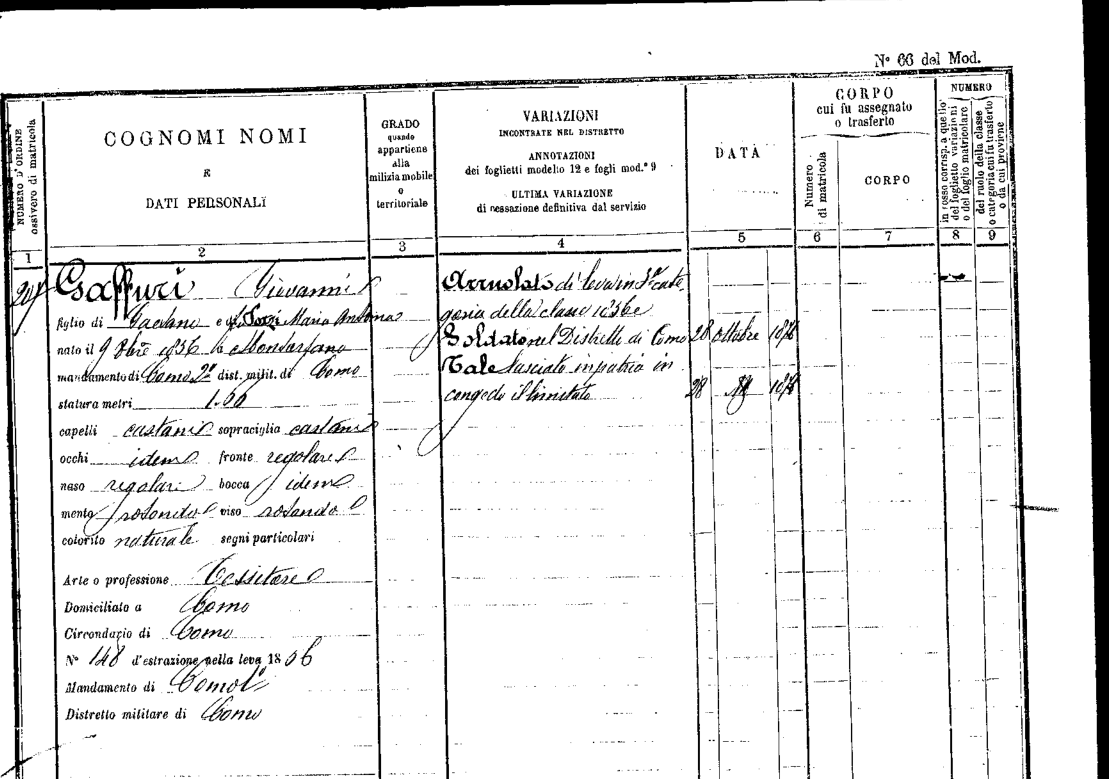 N° 66 del Mod.
NUMERO D'ORDINE
ossivero di matricola
COGNOMI NOMI
E
DATI PERSONALI
GRADO
quando
appartiene
alla
milizia mobile
o
territoriale
VARIAZIONI
INCONTRATE NEL DISTRETTO
ANNOTAZIONI
dei foglietti modello 12 e fogli mod.° 9
ULTIMA VARIAZIONE
di cessazione definitiva dal servizio
DATA
CORPO
cui fu assegnato
o trasferto
Numero
di matricola
CORPO
NUMERO
in rosso corrisp. a quello
del foglietto variazioni
o del foglio matricolare
del ruolo della classe
o categoria cui fu trasferto
o da cui proviene
1 2 3 4 5 6 7 8 9
Gaffuri Giovanni
figlio di Gaetano e Maria Antonia
nato il 9 Xbre 1856 a Monsorfano
mandamento di Como 2° dist. milit. di Como
statura metri
capelli castani sopraciglia castani
occhi idem fronte regolare
naso regolare bocca idem
mento rotondo viso rotondo
colorito naturale segni particolari
Arte o professione Tessitore
Domiciliato a Como
Circondario di Como
N° 148 d'estrazione nella leva 1856
Mandamento di Como
Distretto militare di Como
Arruolato di leva in cate
goria della classe 1856 e
Soldato nel Distretto di Como 28 ottobre 1876
Tale lasciato in patria in
congedo illimitato 28 1876